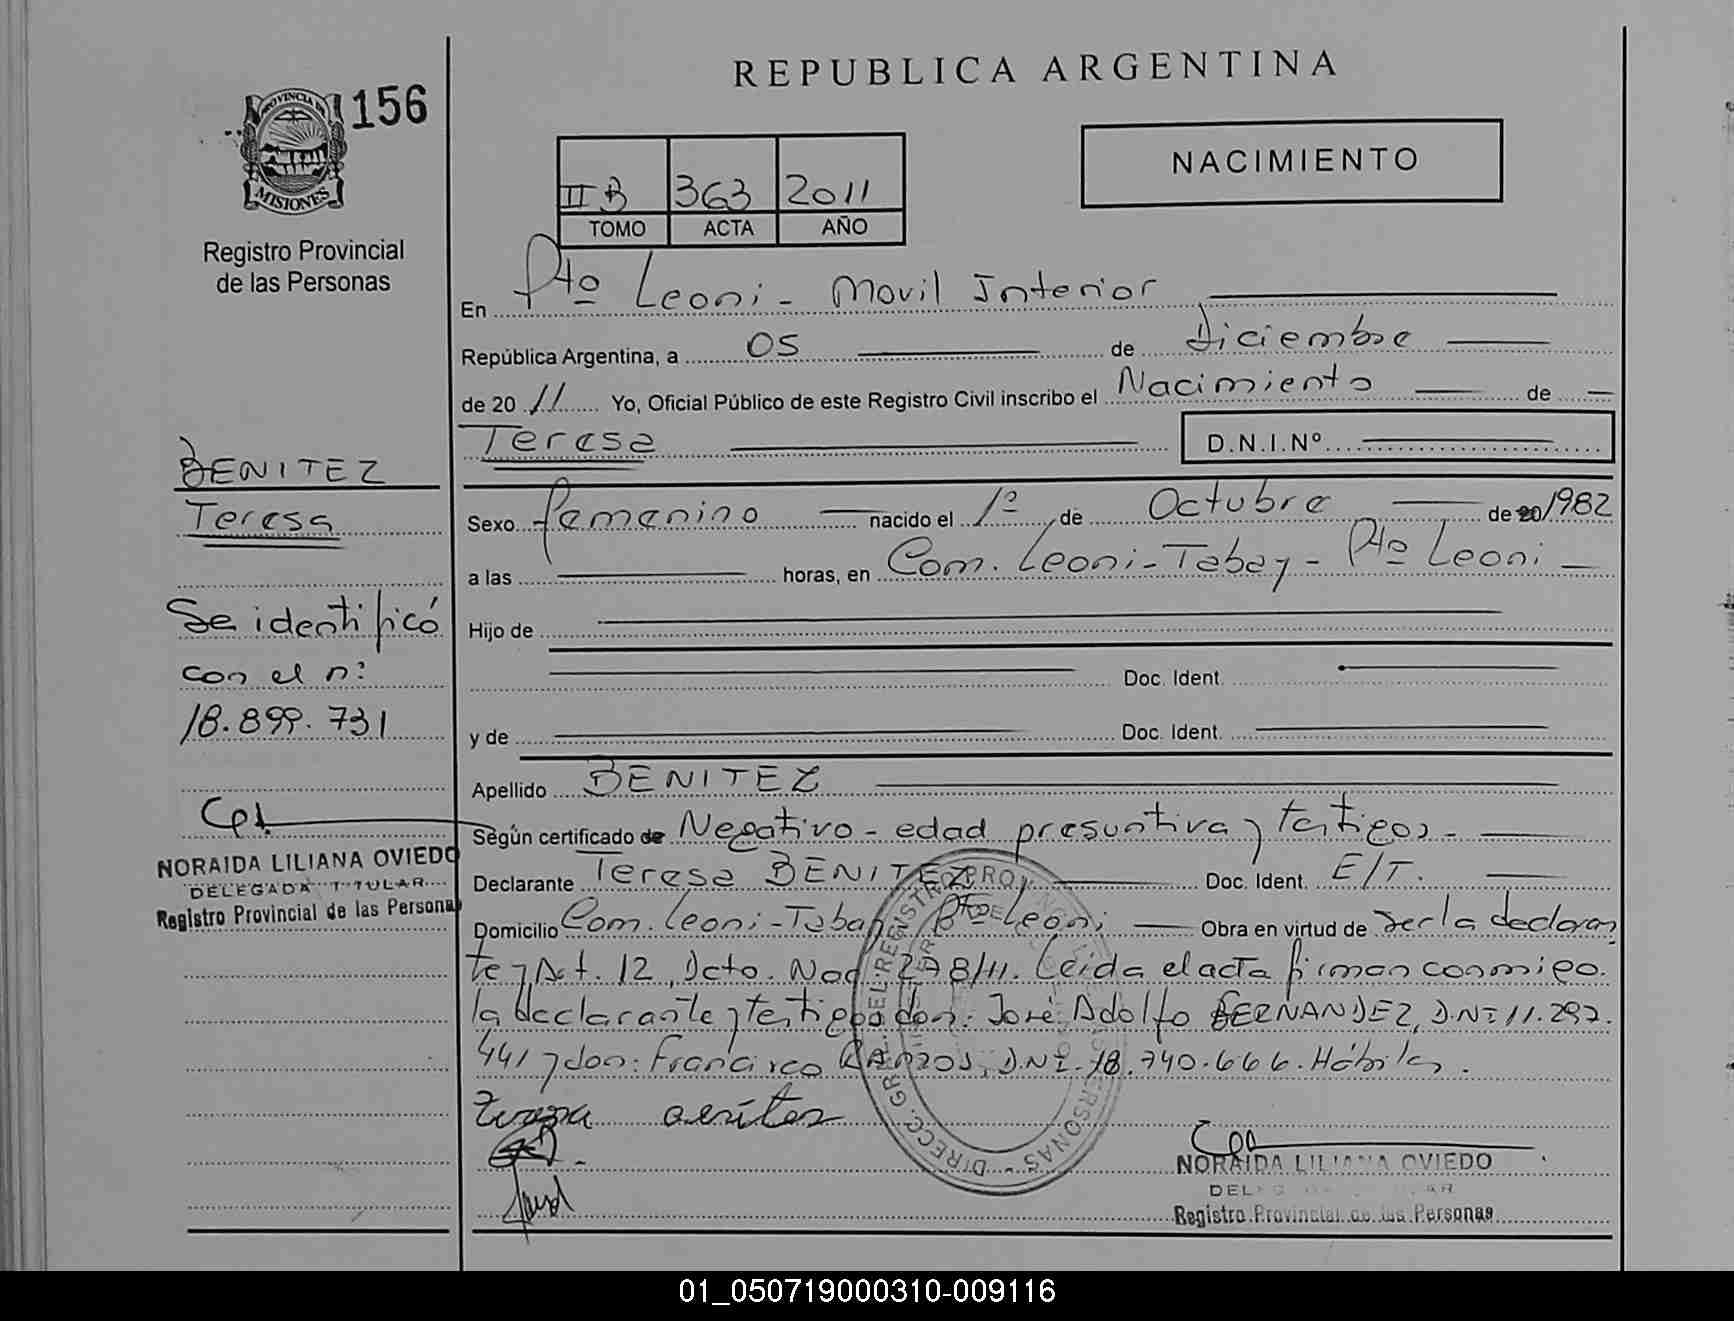 REPUBLICA ARGENTINA
PROVINCIA DE MISIONES
156
Registro Provincial
de las Personas
II B 363 2011
TOMO ACTA AÑO
NACIMIENTO
En Pto Leoni - Movil Interior
República Argentina, a 05 de Diciembre
de 20 11 Yo, Oficial Público de este Registro Civil inscribo el Nacimiento de
Teresa D.N.I.Nº
BENITEZ
Teresa
Se identificó
con el nº:
18.899.731
NORAIDA LILIANA OVIEDO
DELEGADA TITULAR
Registro Provincial de las Personas
Sexo femenino nacido el 1º de Octubre de 20 1982
a las horas, en Com. Leoni-Tabay - Pto Leoni
Hijo de
Doc. Ident.
y de Doc. Ident.
Apellido BENITEZ
Según certificado de Negativo - edad presuntiva y testigos -
Declarante Teresa BENITEZ Doc. Ident. E/T.
Domicilio Com. Leoni-Tabay Pto Leoni Obra en virtud de ser la declaran
te y Art. 12, Dcto. Nac 278/11. Leida el acta firman conmigo.
la declarante y testigos don: José Adolfo FERNANDEZ, DNI 11.297.
441 y don: Francisco DNI. 18.740.666. Hábiles.
NORAIDA LILIANA OVIEDO
DELEGADA TITULAR
Registro Provincial de las Personas
01_050719000310-009116